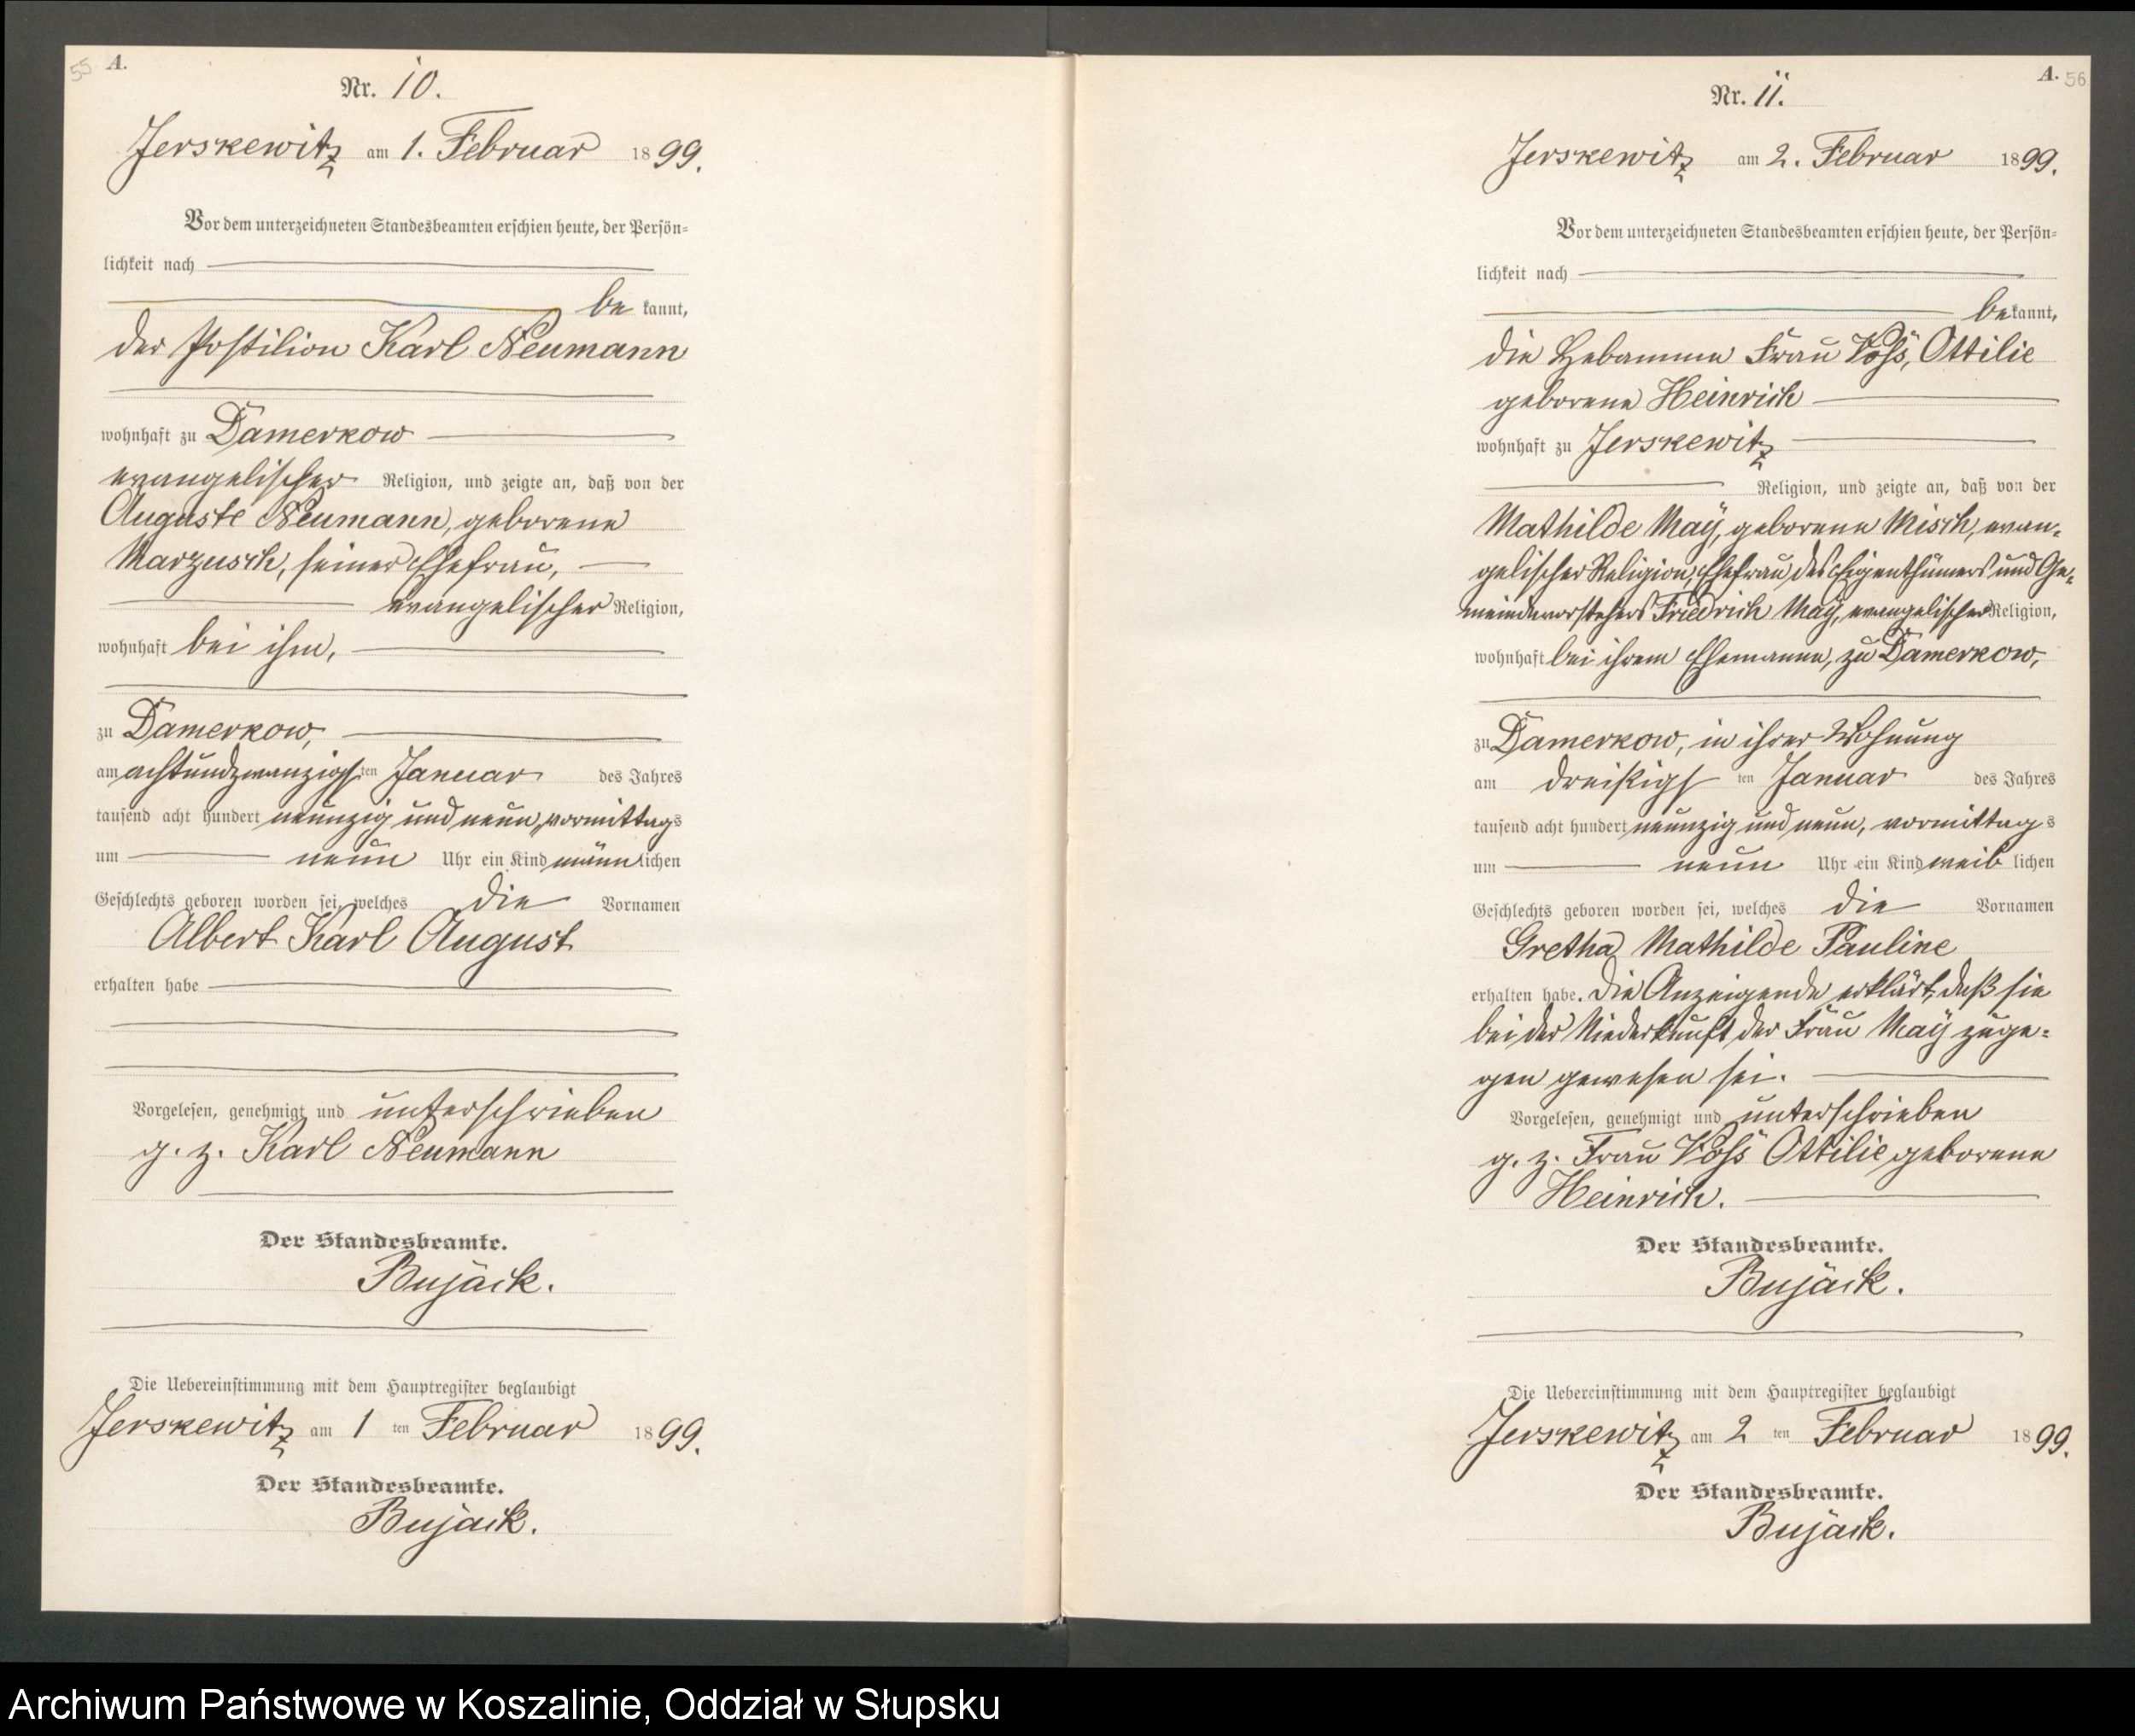 55 A.
Nr. 10.
Jerskewitz am 1. Februar 1899.
Vor dem unterzeichneten Standesbeamten erschien heute, der Persön=
lichkeit nach
bekannt,
der Postilion Karl Neumann
wohnhaft zu Damerkow
evangelischer Religion, und zeigte an, daß von der
Auguste Neumann, geborene
Marzusch, seiner Ehefrau,
evangelischer Religion,
wohnhaft bei ihm,
zu Damerkow,
am achtundzwanzigsten Januar des Jahres
tausend acht hundert neunzig und neun, vormittags
um neun Uhr ein Kind männlichen
Geschlechts geboren worden sei, welches die Vornamen
Albert Karl August
erhalten habe
Vorgelesen, genehmigt und unterschrieben
g. z. Karl Neumann
Der Standesbeamte.
Bujack.
Die Uebereinstimmung mit dem Hauptregister beglaubigt
Jerskewitz am 1 ten Februar 1899.
Der Standesbeamte.
Bujack.
A. 56
Nr. 11.
Jerskewitz am 2. Februar 1899.
Vor dem unterzeichneten Standesbeamten erschien heute, der Persön=
lichkeit nach
bekannt,
die Hebamme Frau Voß, Ottilie
geborene Heinrich
wohnhaft zu Jerskewitz
Religion, und zeigte an, daß von der
Mathilde Maÿ, geborene Misch, evan=
gelischer Religion, Ehefrau des Eigenthümers und Ge=
meindevorstehers Friedrich Maÿ, evangelischer Religion,
wohnhaft bei ihrem Ehemanne, zu Damerkow,
zu Damerkow, in ihrer Wohnung
am dreißigsten Januar des Jahres
tausend acht hundert neunzig und neun, vormittags
um neun Uhr ein Kind weiblichen
Geschlechts geboren worden sei, welches die Vornamen
Gretha Mathilde Pauline
erhalten habe. Die Anzeigende erklärt, daß sie
bei der Niederkunft der Frau Maÿ zuge=
gen gewesen sei.
Vorgelesen, genehmigt und unterschrieben
g. z. Frau Voß Ottilie geborene
Heinrich.
Der Standesbeamte.
Bujack.
Die Uebereinstimmung mit dem Hauptregister beglaubigt
Jerskewitz am 2 ten Februar 1899.
Der Standesbeamte.
Bujack.
Archiwum Państwowe w Koszalinie, Oddział w Słupsku